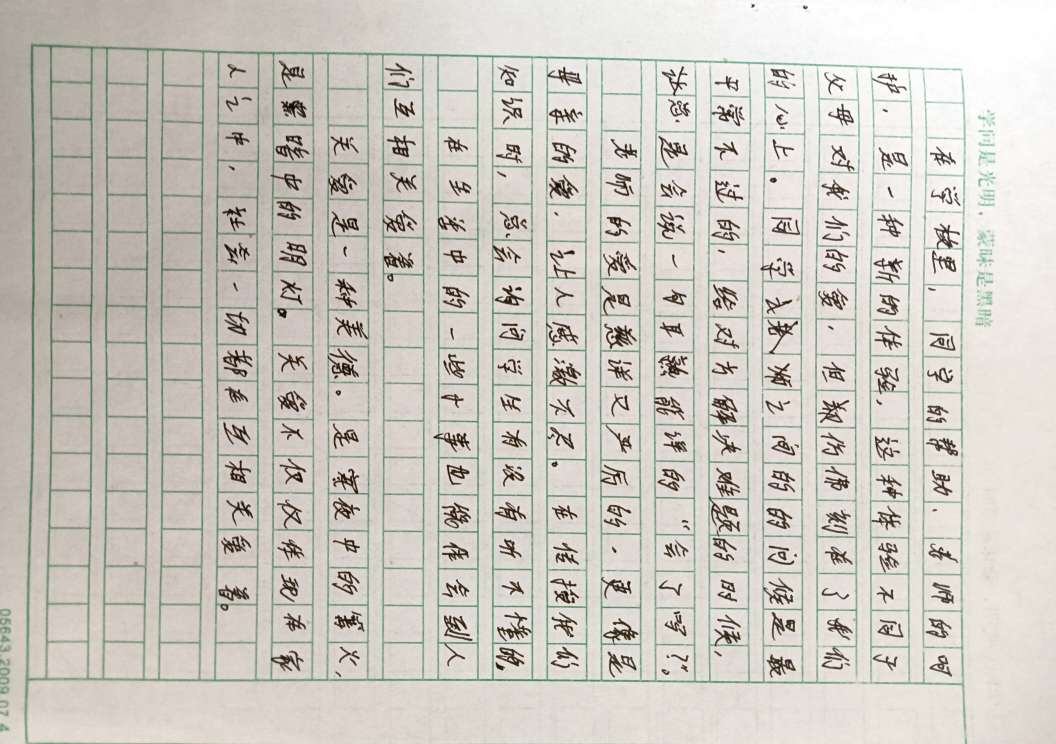 学问是光明，蒙昧是黑暗
在学校里，同学的帮助、老师的呵
护，是一种新的体验，这种体验不同于
父母对我们的爱，但却仿佛刻进了我们
的心上。同学之间的的问候是最
平常不过的，给对方解决难题的时候，
总是会说一句耳熟能详的“会了吗？”。
老师的爱是慈祥又严厉的，更像是
的爱，让人感激不尽。在传授他们
知识时，总会询问学生有没有听不懂的，
在生活中的一些小事也能体会到人
们互相关爱着。
关爱是一种美德。是寒夜中的篝火，
是黑暗中的明灯。关爱不仅仅体现在家
人之中，社会一切都在互相关爱着。
05643.2009.07.4